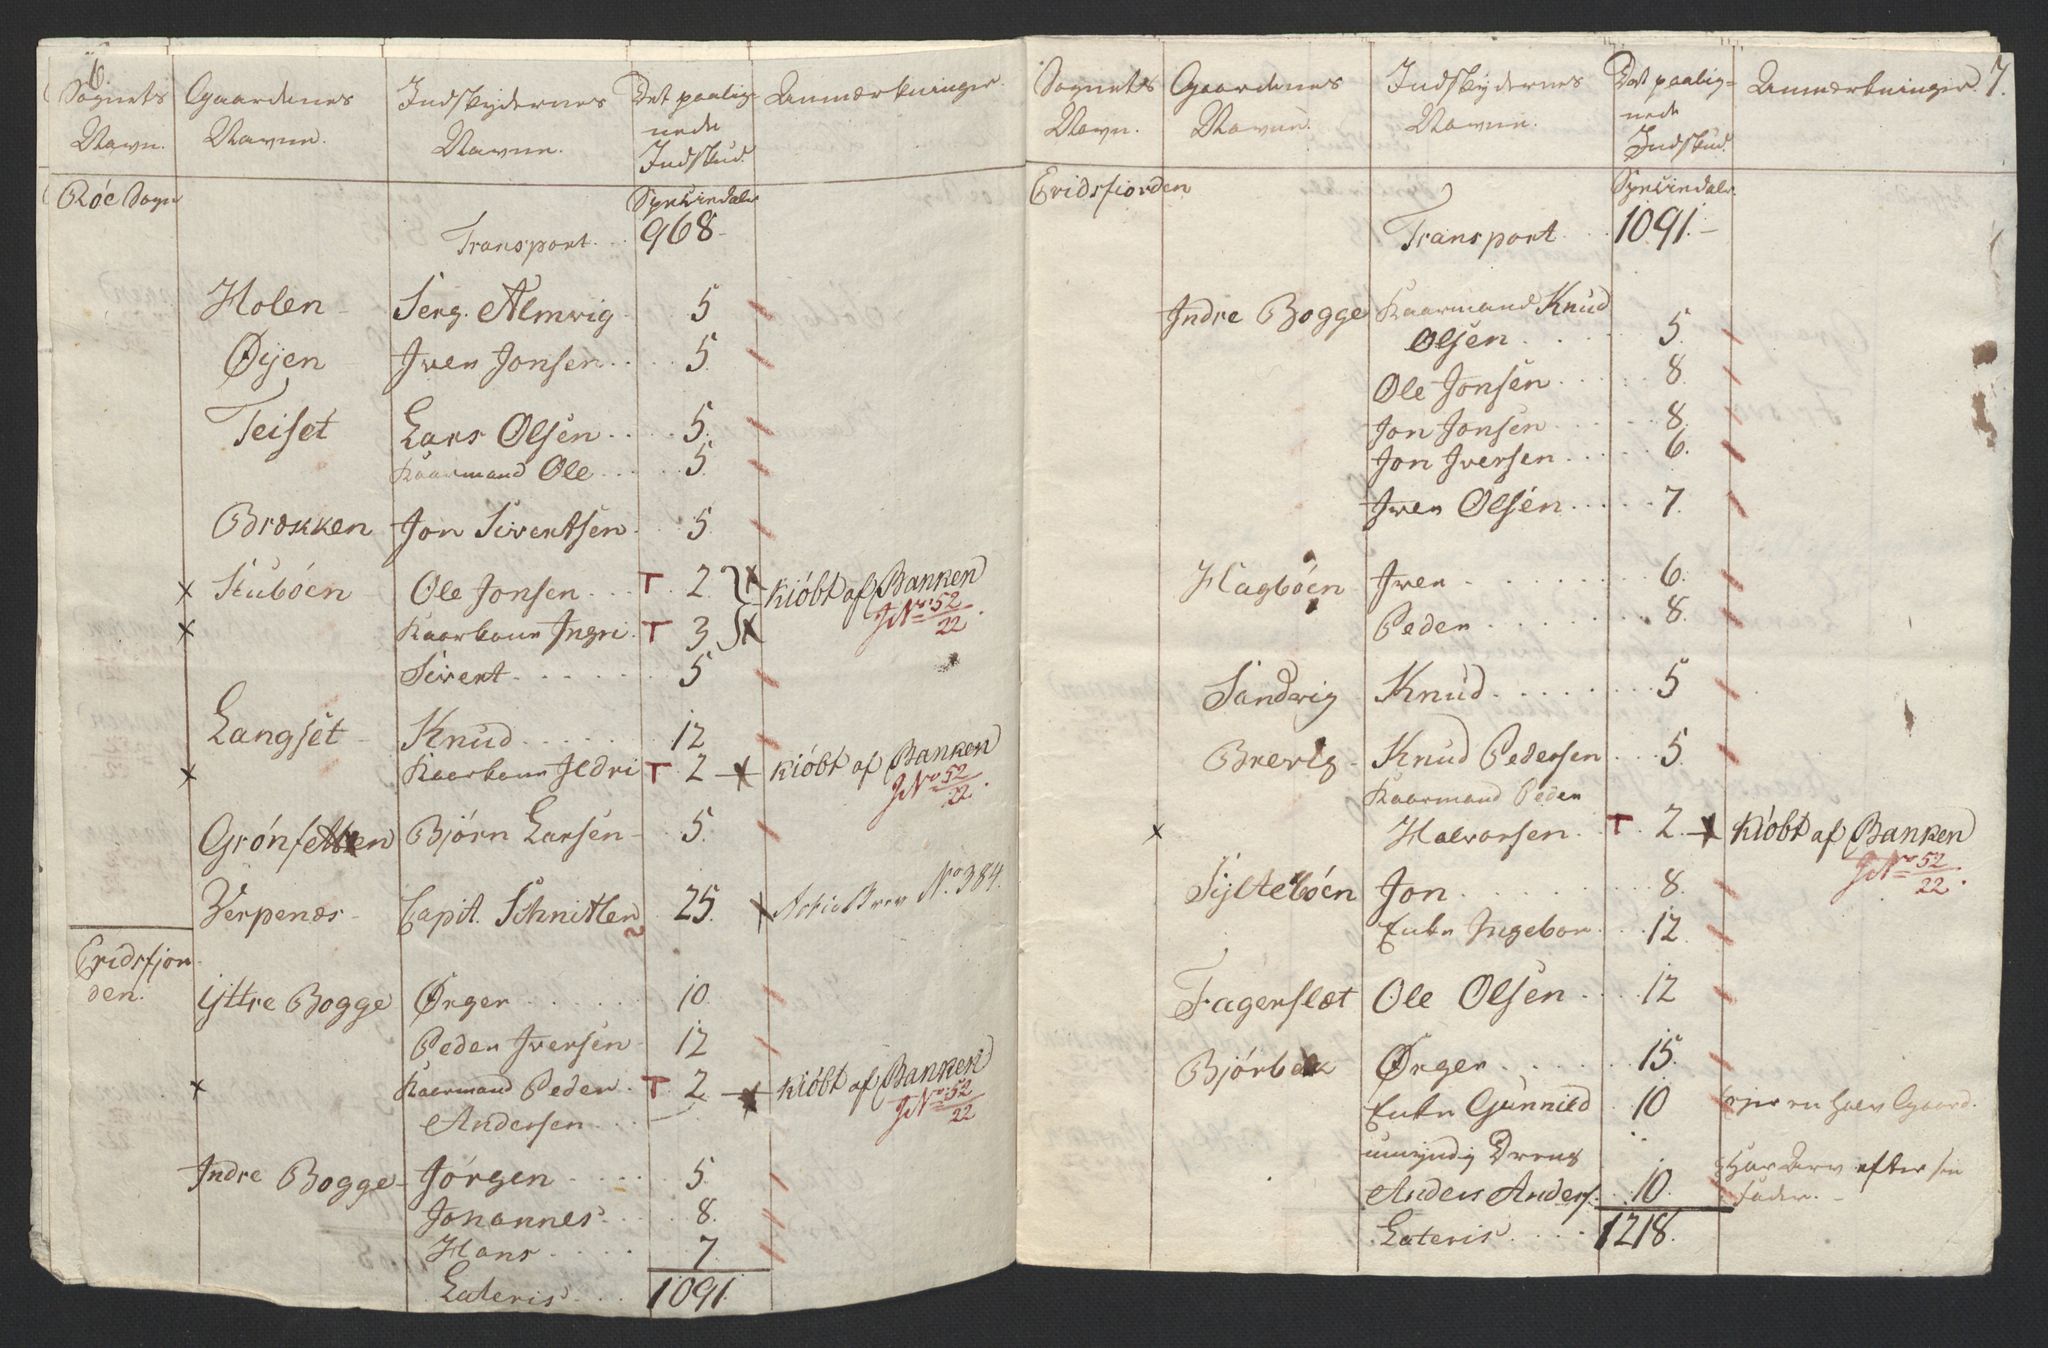 6.
Sognets Navn. Gaardenes Navne. Indskydernes Navne. Det paalignede Indskud. Anmærkninger.
Røe Sogn Speciedaler
Transport . . 968.-
Holen - Serg. Almvig . 5
Øijen Iver Jonsen . . . 5.
Teiset Lars Olsen . . . 5.
Kaarmand Ole . . . 5.
Brøkken Jon Sivertsen . 5.
x Stuboen Ole Jonsen . . T 2. } x Kiöbt af Banken
x Kaarkone Ingri . T 3 } x JNr. 52/22.
Sivert . . . . . 5
Langset - Knud . . . . . 12
x Kaarkone Ildri T 2 x Kiöbt af Banken
JNr. 52/22.
Grönsetten Björn Larsen - 5.
Verpenæs - Capit. Schnitler 25. x Actie Brev No. 384.
Eridsfjor-
den.
Yttre Bogge Ørger . . . . . 10.
Peder Iversen . 12
x Kaarmand Peder T 2 x Kiöbt af Banken
Andersen . . . JNr. 52/22
Indre Bogge - Jörgen . . . . 5.
Johannes . . . 8.
Hans . . . . 7.
Lateris . . . 1091.
7.
Sognets Navn. Gaardenes Navne. Indskydernes Navne. Det paalignede Indskud. Anmærkninger
Eridsfiorden Speciedaler
Transport . . . 1091.-
Indre Bogge Kaarmand Knud
Olsen . . . . 5.
Ole Jonsen . . . . 8.
Jon Jonsen . . . . 8.
Jon Iversen . . . . 6.
Iver Olsen . . . . 7.
Hagböen Iver . . . . . 6.
Peder . . . . . 8.
Sandvig Knud . . . . . 5
Brevig - Knud Pedersen . . 5.
Kaarmand Peder
x Halvorsen . T 2. x Kiöbt af Banken
JNr. 52/22.
Sylteböen Jon . . . . . 8.
Enke Ingebor . . 12
Fagerslæt Ole Olsen . . . 12
Bjørbek Ørger . . . . . 15.
Enke Gunnild . 10 ejer en halv Gaard.
umyndig Dreng
Anders Anders. . 10. Har Arv efter sin
Fader. -
Lateris . . . . 1218.